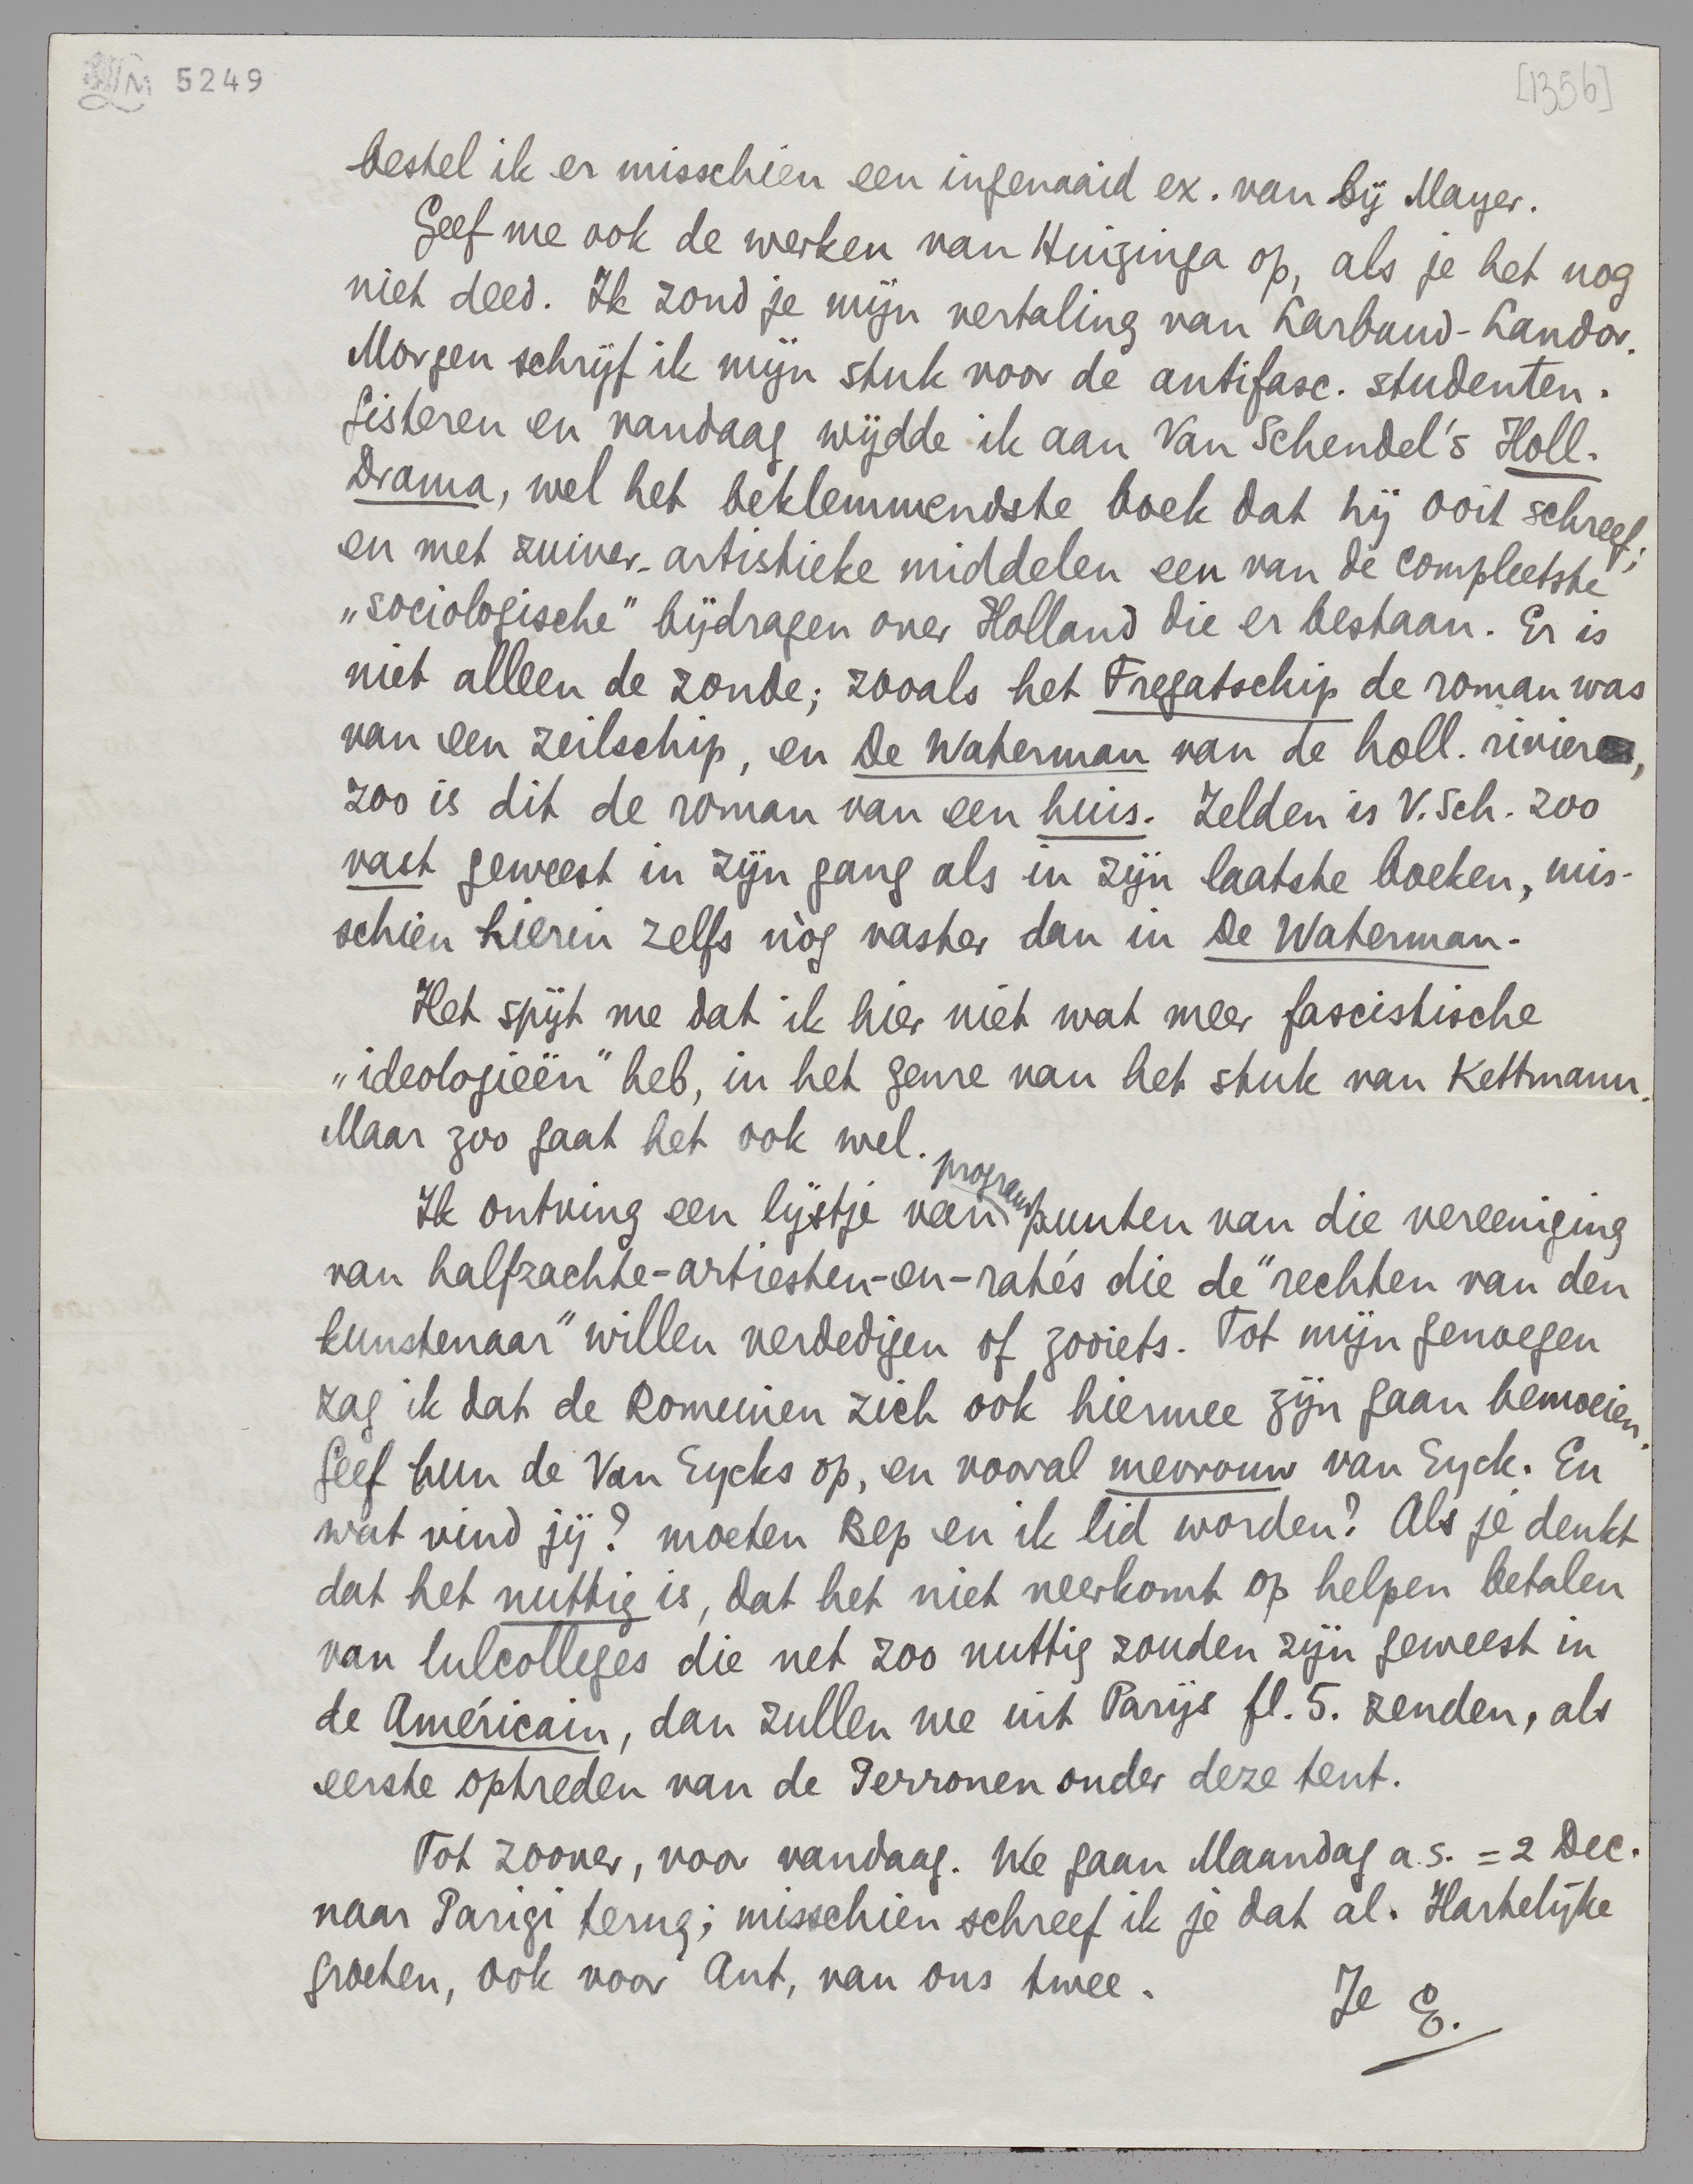 5249
[1356]
bestel ik er misschien een ingenaaid ex. van bij Mayer.
Geef me ook de werken van Huizinga op, als je het nog
niet deed. Ik zond je mijn vertaling van Larbaud-Landor.
Morgen schrijf ik mijn stuk voor de antifasc. studenten.
Gisteren en vandaag wijdde ik aan Van Schendel's Holl.
Drama, wel het beklemmendste boek dat hij ooit schreef;
en met zuiver-artistieke middelen een van de compleetste
„sociologische" bijdragen over Holland die er bestaan. Er is
niet alleen de zonde; zooals het Fregatschip de roman was
van een zeilschip, en De Waterman van de holl. rivier,
zoo is dit de roman van een huis. Zelden is V. Sch. zoo
vast geweest in zijn gang als in zijn laatste boeken, mis-
schien hierin zelfs nòg vaster dan in De Waterman.
Het spijt me dat ik hier niet wat meer fascistische
„ideologieën" heb, in het genre van het stuk van Kettmann.
Maar zoo gaat het ook wel.
Ik ontving een lijstje van programpunten van die vereeniging
van halfzachte-artiesten-en-ratés die de "rechten van den
kunstenaar" willen verdedigen of zooiets. Tot mijn genoegen
zag ik dat de Romeinen zich ook hiermee zijn gaan bemoeien.
Geef hun de Van Eycks op, en vooral mevrouw van Eyck. En
wat vind jij? moeten Bep en ik lid worden? Als je denkt
dat het nuttig is, dat het niet neerkomt op helpen betalen
van lulcolleges die net zoo nuttig zouden zijn geweest in
de Américain, dan zullen we uit Parijs fl. 5. zenden, als
eerste optreden van de Perronen onder deze tent.
Tot zoover, voor vandaag. We gaan Maandag a.s. = 2 Dec.
naar Parigi terug; misschien schreef ik je dat al. Hartelijke
groeten, ook voor Ant, van ons twee.
Je E.